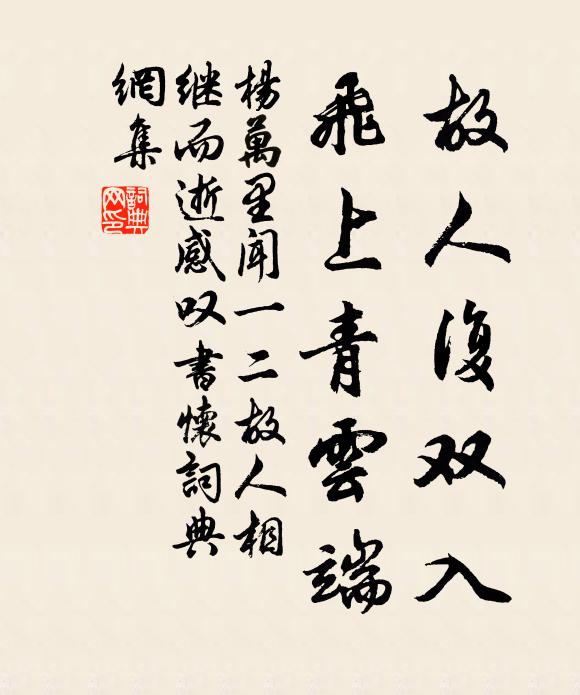 故人復双入
飛上青雲端
楊萬里聞一二故人相
继而逝感叹書懷詞典
網集
詞典
网印